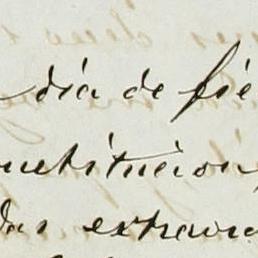 día de fie
nstitucion,
das extraor